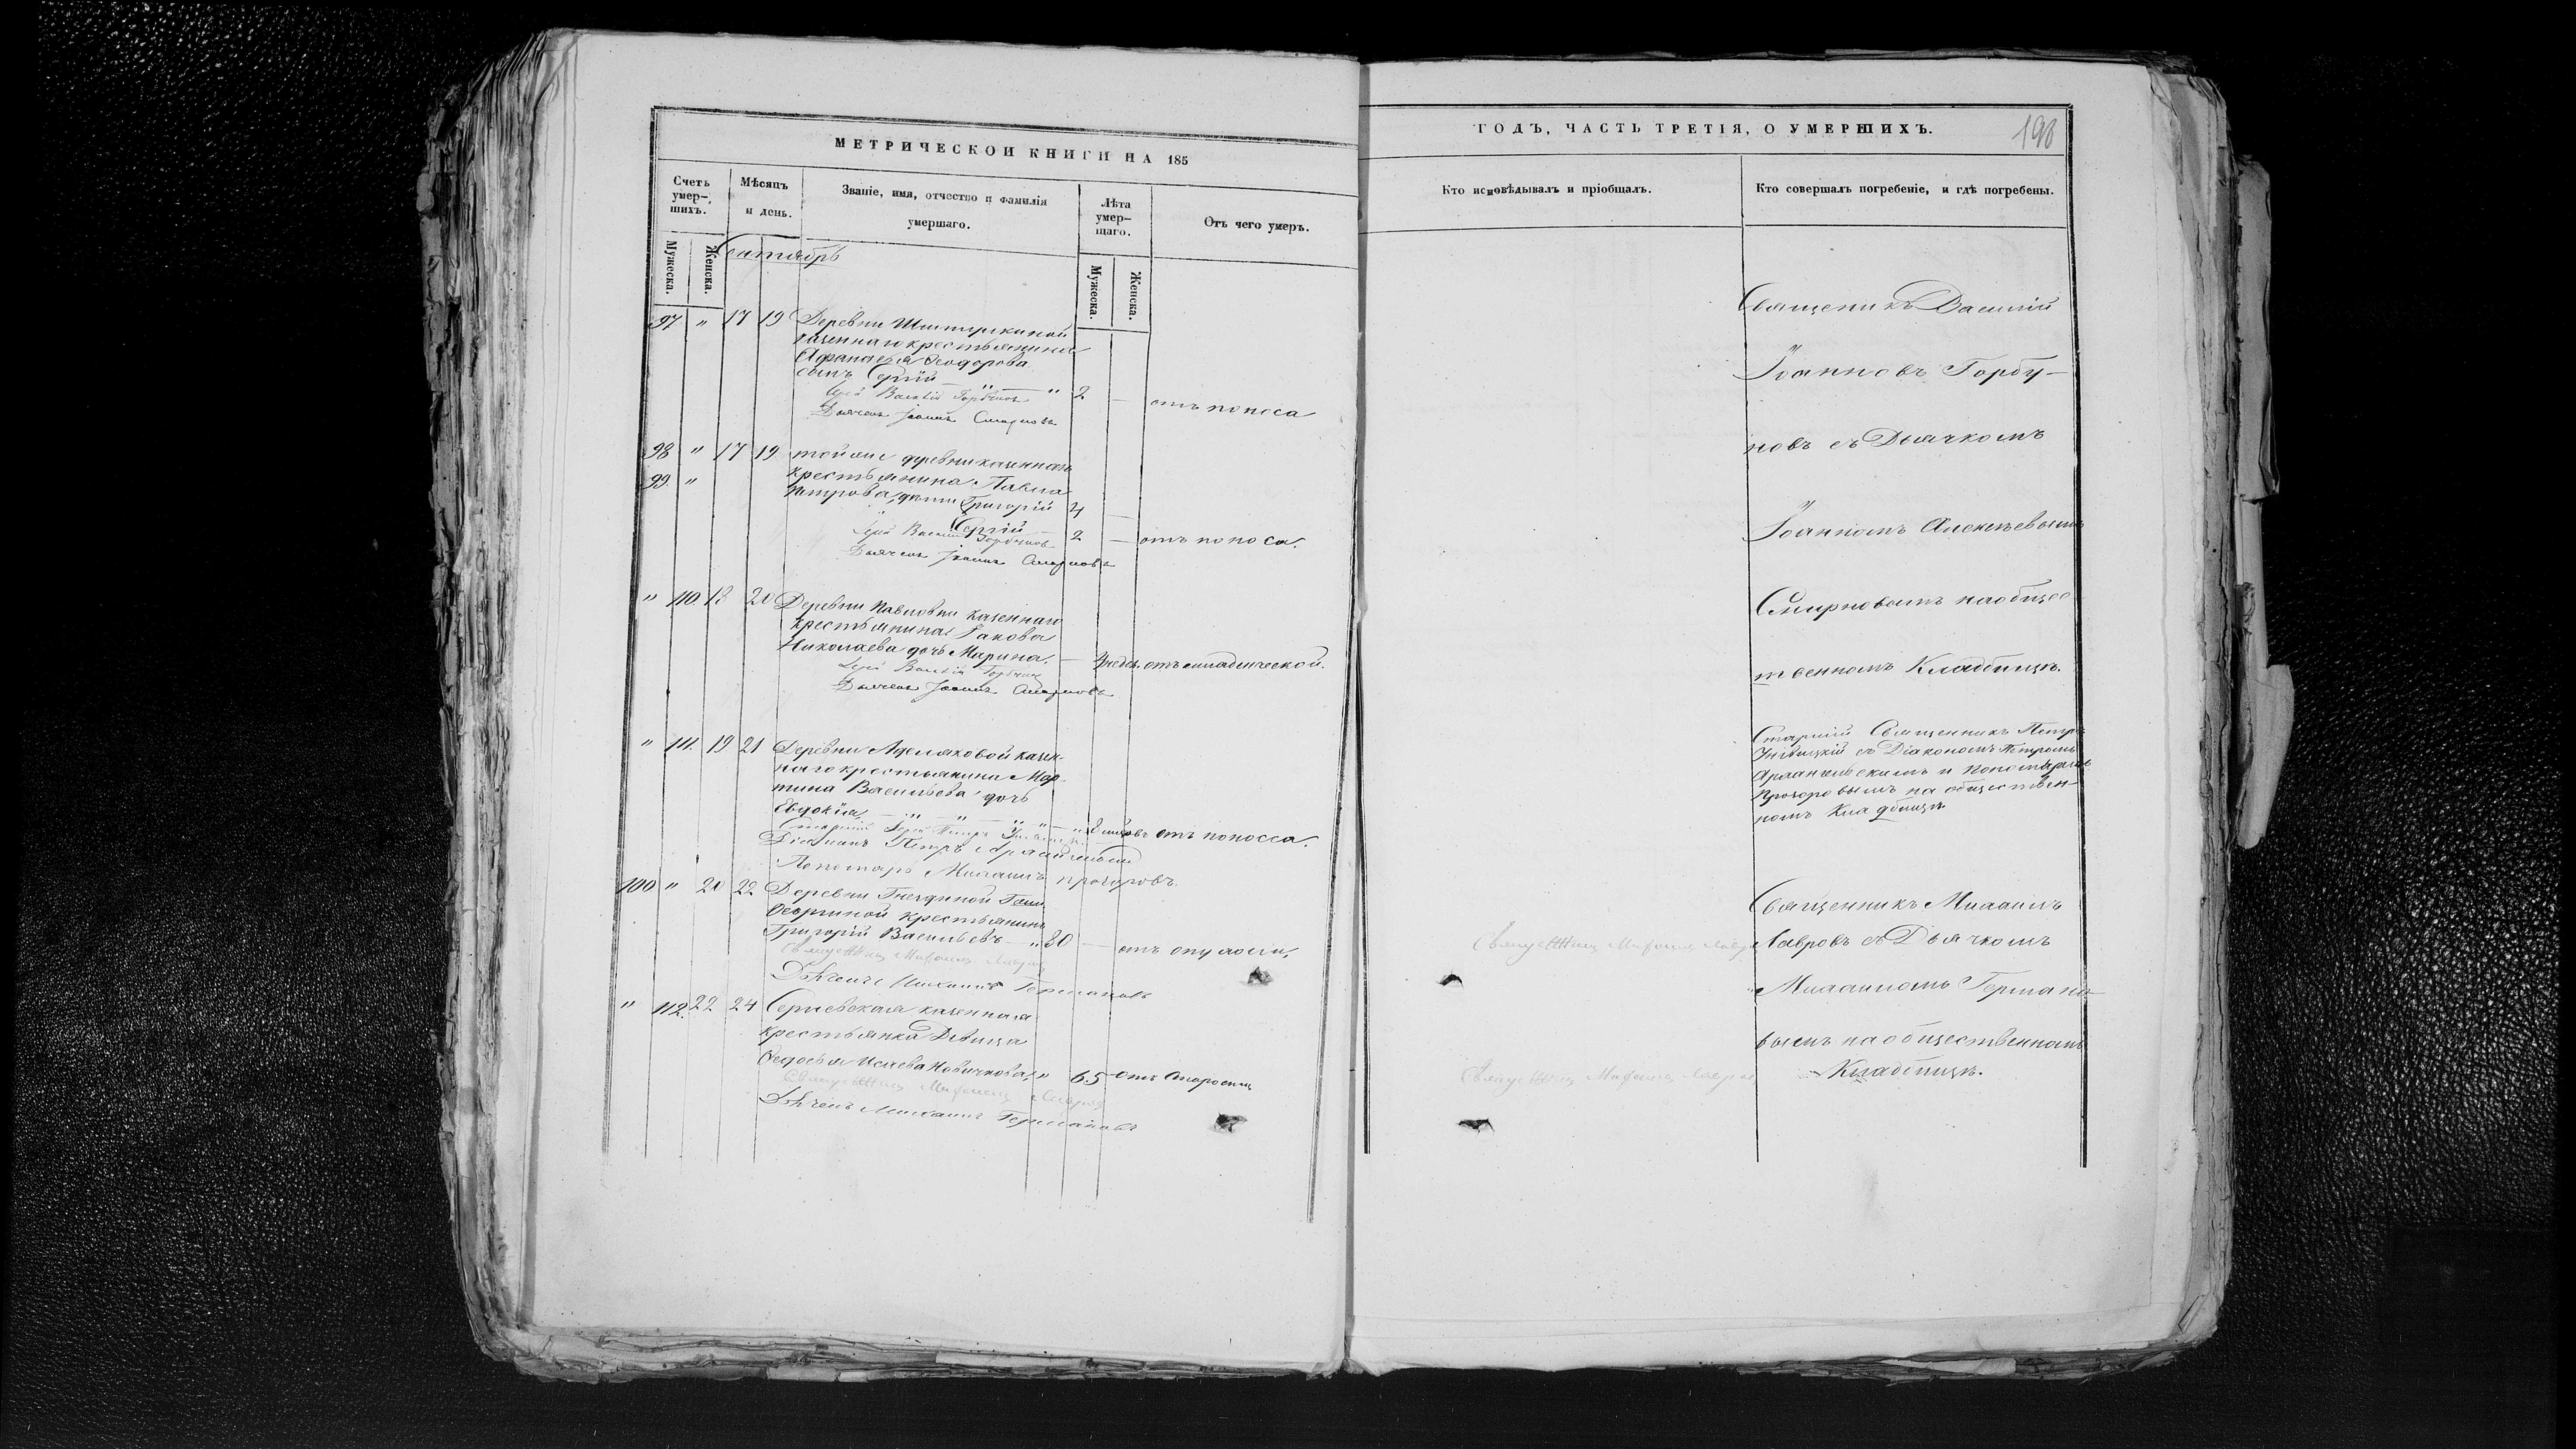 МЕТРИЧЕСКОЙ КНИГИ НА 185
Счетъ умер-шихъ.
Мѣсяцъ и день.
Званіе, имя, отчество и фамилія умершаго.
Лѣта умер-шаго.
Отъ чего умеръ.
Мужеска. Женска.
Мужеска. Женска.
Сентябрь
97 " 17 19 Деревни
казеннаго крестьянина
Афанасья Ѳеодорова
сынъ Сергій — " — " 2 — отъ поноса
Іерей Василій Горбуновъ
Дьячекъ Іоаннъ Смирновъ
98 " 17 19 той же деревни казеннаго
99 " крестьянина Павла
Петрова, дѣти Григорій 4 —
Сергій — 2 — отъ поноса.
Іерей Василій Горбуновъ
Дьячекъ Іоаннъ Смирновъ
" 110. 18 20 Деревни Павловки казеннаго
крестьянина Іакова
Николаева дочь Марина. — 4 недѣл. отъ младенческой.
Іерей Василій Горбунов
Дьячекъ Іоаннъ Смирновъ
" 111. 19 21 Деревни Аделяковой казен-
наго крестьянина Мар-
тина Васильева дочь
Евдокія — " — " — " — " отъ поносса.
Старшій Іерей Петръ
Діаконъ Петръ Архангельскій
Пономарь Михаилъ Прохоровъ.
100 " 20 22 Деревни Гнездиной
крестьянинъ
Григорій Васильевъ — " 80 — отъ опухоли,
Священникъ Михаилъ Лавровъ
Дьячекъ Михаилъ Германовъ
" 112. 22 24 Сергіевская казенная
крестьянка Дѣвица
Ѳедосья Исаева Новичкова, " 65 отъ старости
Священникъ Михаилъ Лавровъ
Дьячекъ Михаилъ Германовъ
ГОДЪ, ЧАСТЬ ТРЕТІЯ, О УМЕРШИХЪ.
198
Кто исповѣдывалъ и пріобщалъ.
Кто совершалъ погребеніе, и гдѣ погребены.
Священикъ Василій
Іоанновъ Горбу-
новъ съ Дьячкомъ
Іоанномъ Алексѣевымъ
Смирновымъ на общес-
твенномъ Кладбищѣ.
Старшій Священникъ Петръ
съ Діакономъ Петромъ
Архангельскимъ и пономаремъ
Прохоровымъ на обществен-
номъ Кладбищѣ
Священникъ Михаилъ
Лавровъ съ Дьячкомъ
Михаиломъ Германо-
вымъ на общественномъ
Кладбищѣ.
Священникъ Михаилъ Лавров
Священникъ Михаилъ Лавров